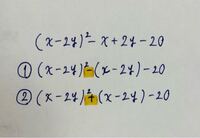 (x-2y)² - x + 2y - 20
① (x-2y)² - (x-2y) - 20
② (x-2y)² + (x-2y) - 20